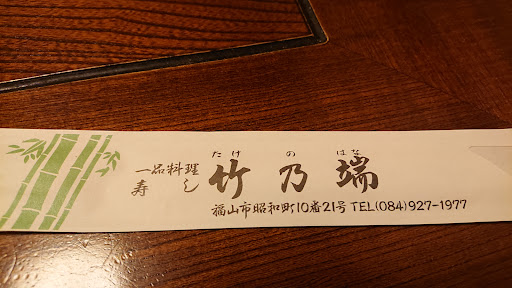 たけ の はな
一品料理
寿し 竹乃端
福山市昭和町10番21号 TEL(084)927-1977